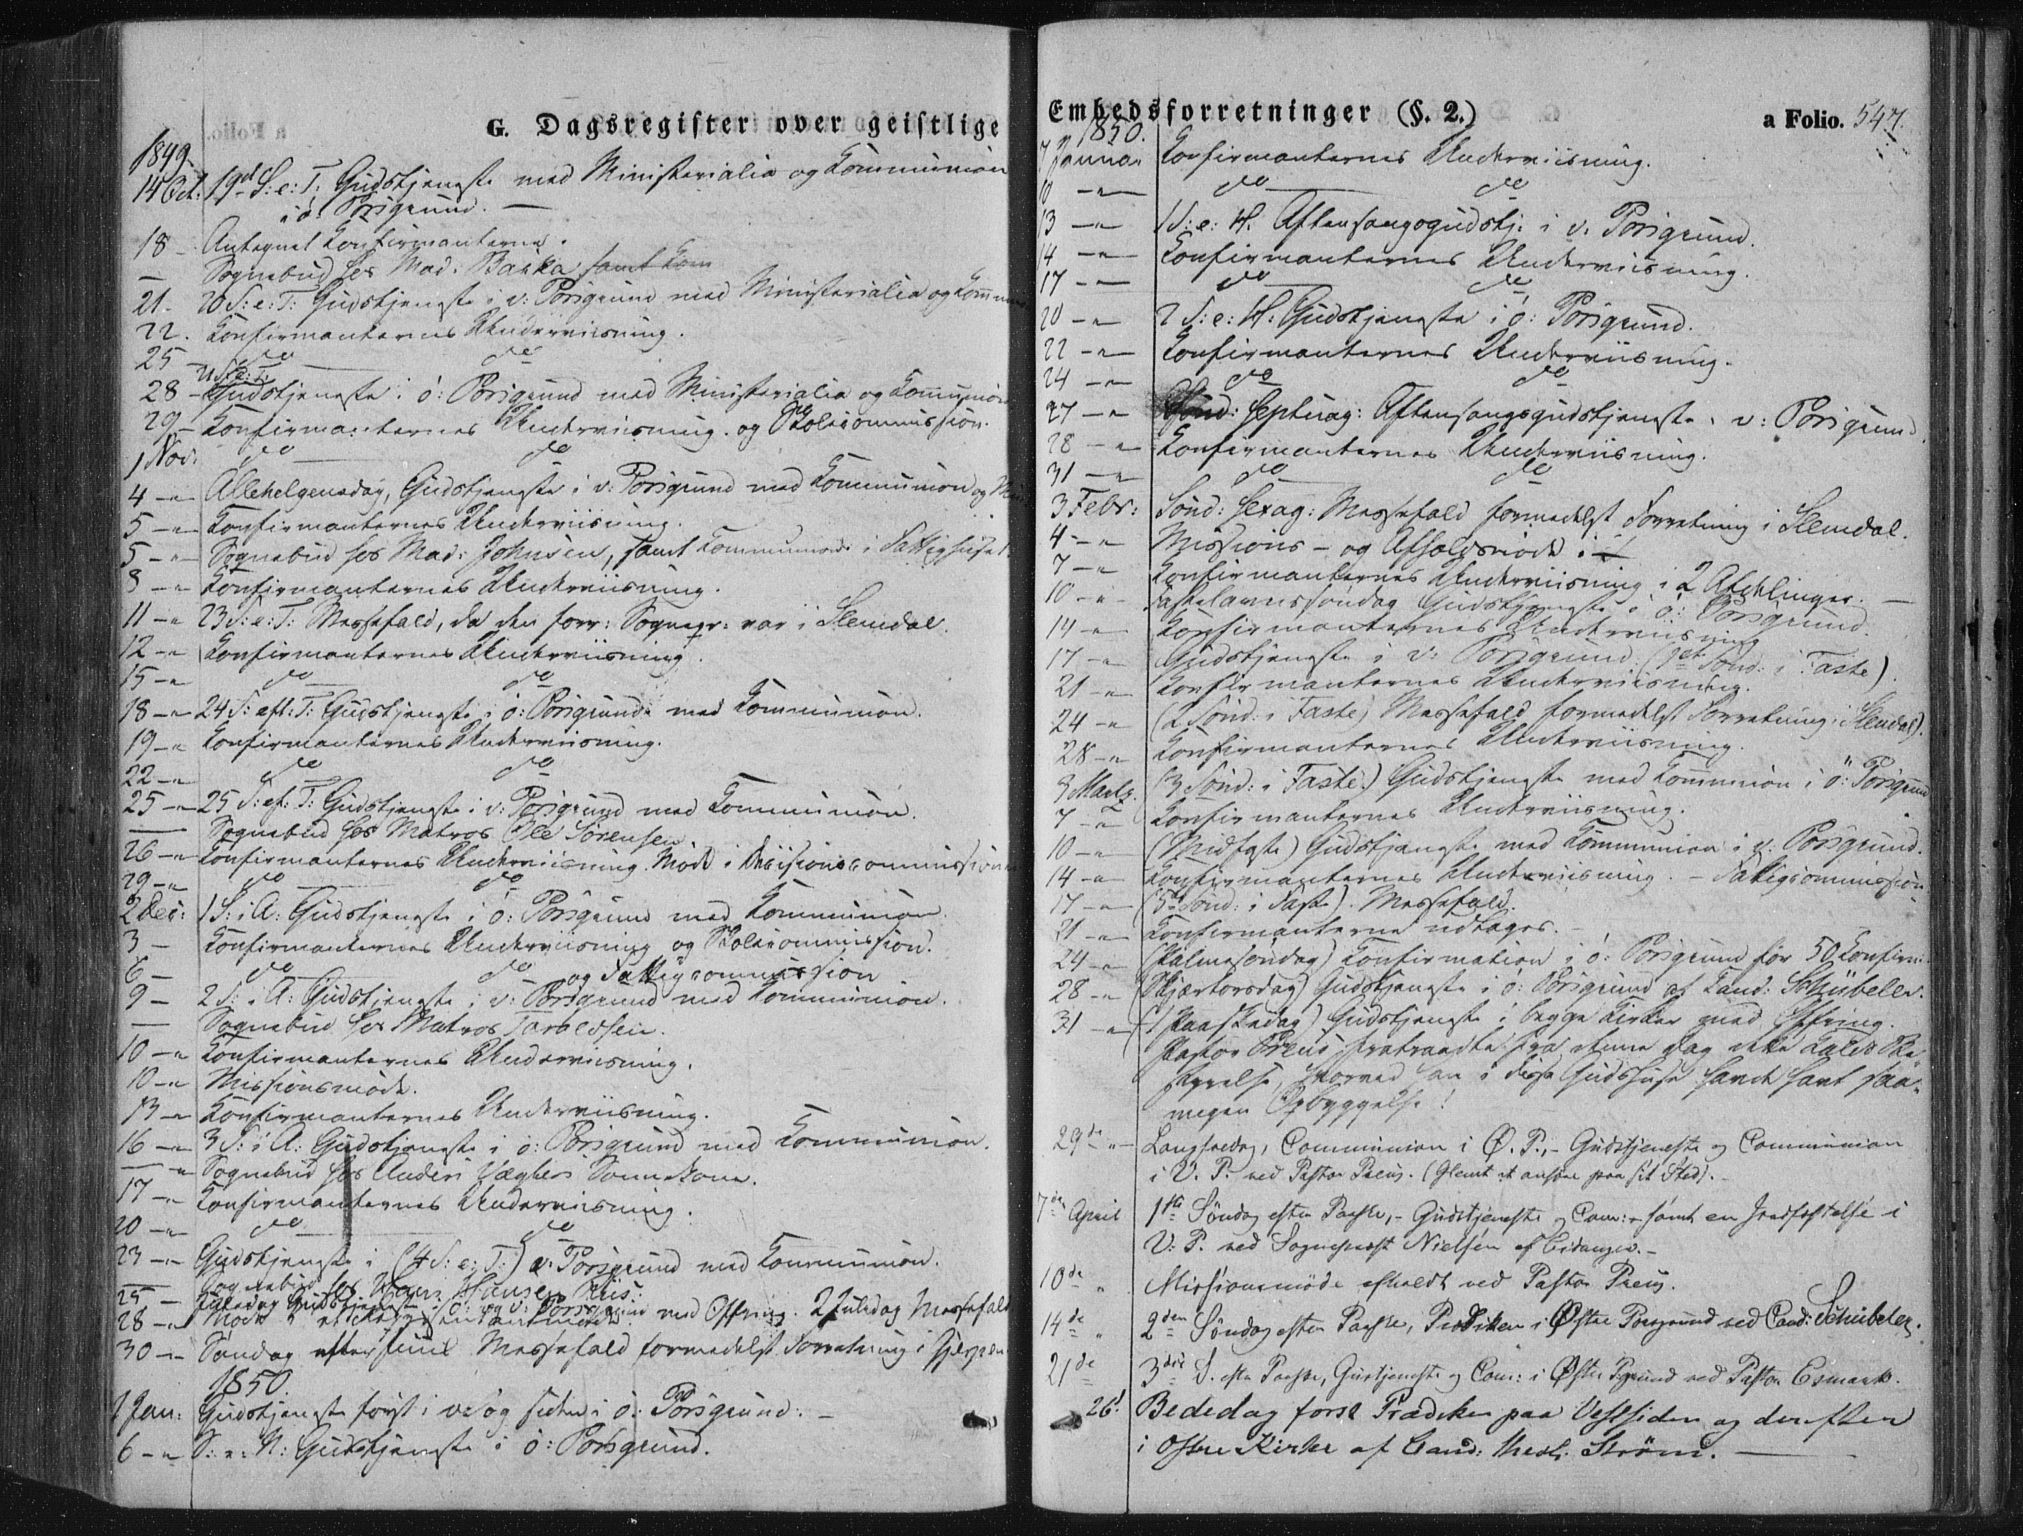 G. Dagsregister over geistlige
1849.
14 Oct: 19d S: e: T: Gudstjeneste med Ministerialia og Kommunion
i ö: Porsgrund. —
18 - Antegnet Konfirmanterne.
— Sognebud hos Mad: Barka samt Kom
21. 20 S: e: T: Gudstjeneste i v: Porsgrund med Ministerialia og Kommun
22. Konfirmanternes Underviisning.
25 do do
21 S: e: T:
28 - Gudstjeneste i ö: Porsgrund med Ministerialia og Kommunion
29 - Konfirmanternes Underviisning. og Skolecommission.
1 Nov: do do
4 -"- Allehelgensdag, Gudstjeneste i v: Porsgrund med Kommunion og
5 -"- Konfirmanternes Underviisning.
5 -"- Sognebud hos Mad: Johnsen, samt Kommunion i Fattighuset
8 -"- Konfirmanternes Underviisning.
11 -"- 23 S: e: T: Messefald, da den forr: Sognepr: var i Slemdal.
12 -"- Konfirmanternes Underviisning.
15 -"- do do
18 -"- 24 S: eft: T: Gudstjeneste i ö: Porsgrund med Kommunion.
19 -"- Konfirmanternes Underviisning.
22 -"- do do
25 -"- 25 S: ef: T: Gudstjeneste i v: Porsgrund med Kommunion.
— Sognebud hos Matros Ole Sörensen
26 -"- Konfirmanternes Underviisning. Möde i Decisionscommissionen
29 -"- do do
2 Dec: 1 S: i A: Gudstjeneste i ö: Porsgrund med Kommunion.
3 - Konfirmanternes Underviisning og Skolecommission.
6 - do do og Fattigcommission
9 - 2 S: i A: Gudstjeneste i v: Porsgrund med Kommunion.
— Sognebud hos Matros Taraldsen.
10 -"- Konfirmanternes Underviisning.
10 -"- Missionsmöde.
13 -"- Konfirmanternes Underviisning.
16 -"- 3 S: i A: Gudstjeneste i ö: Porsgrund med Kommunion.
— " Sognebud hos Anders Kone.
17 -"- Konfirmanternes Underviisning.
20 -"- do do
23 -"- Gudstjeneste i (4 S: e: T:) v: Porsgrund med Kommunion.
— Sognebud hos Hans Hansen Riis.
25 - Juledag Gudstjeneste i ö: og v: Porsgrund med Offring. 2 Juledag Messefald
28 -"- Möde i
30 -"- Söndag efter Juul Messefald formedelst Forretning i Gjerpen
1850.
1 Jan: Gudstjeneste först i v: og siden i ö: Porsgrund. —
6 -"- S: e: N: Gudstjeneste i ö: Porsgrund.
Embedsforretninger (§. 2.)
a Folio. 547.
1850.
7 Januar Konfirmanternes Underviisning.
10 -"- do do
13 -"- 1 S: e: H. Aftensangsgudstj: i v. Porsgrund.
14 -"- Konfirmanternes Underviisning.
17 -"- do do
20 -"- 2 S: e: H: Gudstjeneste i ö: Porsgrund.
22 -"- Konfirmanternes Underviisning.
24 -"- do do
27 -"- Sönd: Septuag: Aftensangsgudstjeneste i v: Porsgrund.
28 -"- Konfirmanternes Underviisning.
31 -"- do do
3 Febr: Sönd: Sexag: Messefald formedelst Forretning i Slemdal.
4 -"- Missions- og Afholdsmöde i
7 -"- Konfirmanternes Underviisning i 2 Afdelinger. —
10 -"- Fastelavnssöndag Gudstjeneste i ö: Porsgrund.
14 -"- Konfirmanternes Underviisning
17 -"- Gudstjeneste i v: Porsgrund. (1st Sönd: i Faste).
21 -"- Konfirmanternes Underviisning.
24 -"- (2 Sönd: i Faste) Messefald formedelst Forretning i Slemdal).
28 -"- Konfirmanternes Underviisning.
3 Marts. (3 Sönd: i Faste) Gudstjeneste med Kommunion i ö: Porsgrund
7 -"- Konfirmanternes Underviisning.
10 -"- (Midfaste) Gudstjeneste med Kommunion i v: Porsgrund.
14 -"- Konfirmanternes Underviisning. — Fattigcommission.
17 -"- (5te Sönd: i Faste). Messefald.
21 -"- Konfirmanterne udtages. -
24 -"- (Palmesöndag) Konfirmation i ö: Porsgrund for 50 Konfirm:
28 -"- (Skjærtorsdag) Gudstjeneste i ö: Porsgrund af Cand: Schübeler.
31 -"- (1 Paaskedag) Gudstjeneste i begge Kirker med Offring.
Pastor Preus fratraadte fra denne Dag dette Kalds Be-
styrelse, hvorved han i disse Gudshuse havde havt saa
megen Opbyggelse!
29de " Langfredag, Communion i Ø. P., - Gudstjeneste og Communion
i V. P. ved Pastor Preus. (Glemt at anføre paa sit Sted). -
7de April 1ste Søndag efter Paaske, - Gudstjeneste og Com: - samt en Jordfæstelse i
V. P. ved Sognepræst Nielsen af Eidanger. -
10de " Missionsmøde afholdt ved Pastor Preus.
14de " 2den Søndag efter Paaske, Prædiken i Østre Porsgrund ved Cand: Schübeler.
21de 3die S. efter Paaske, Gudstjeneste og Com: i Østre Pgrund ved Pastor Esmark.
26d Bededag først Prædiken paa Vestsiden og derefter
i Østre Kirke af Cand: theol: Strøm. —